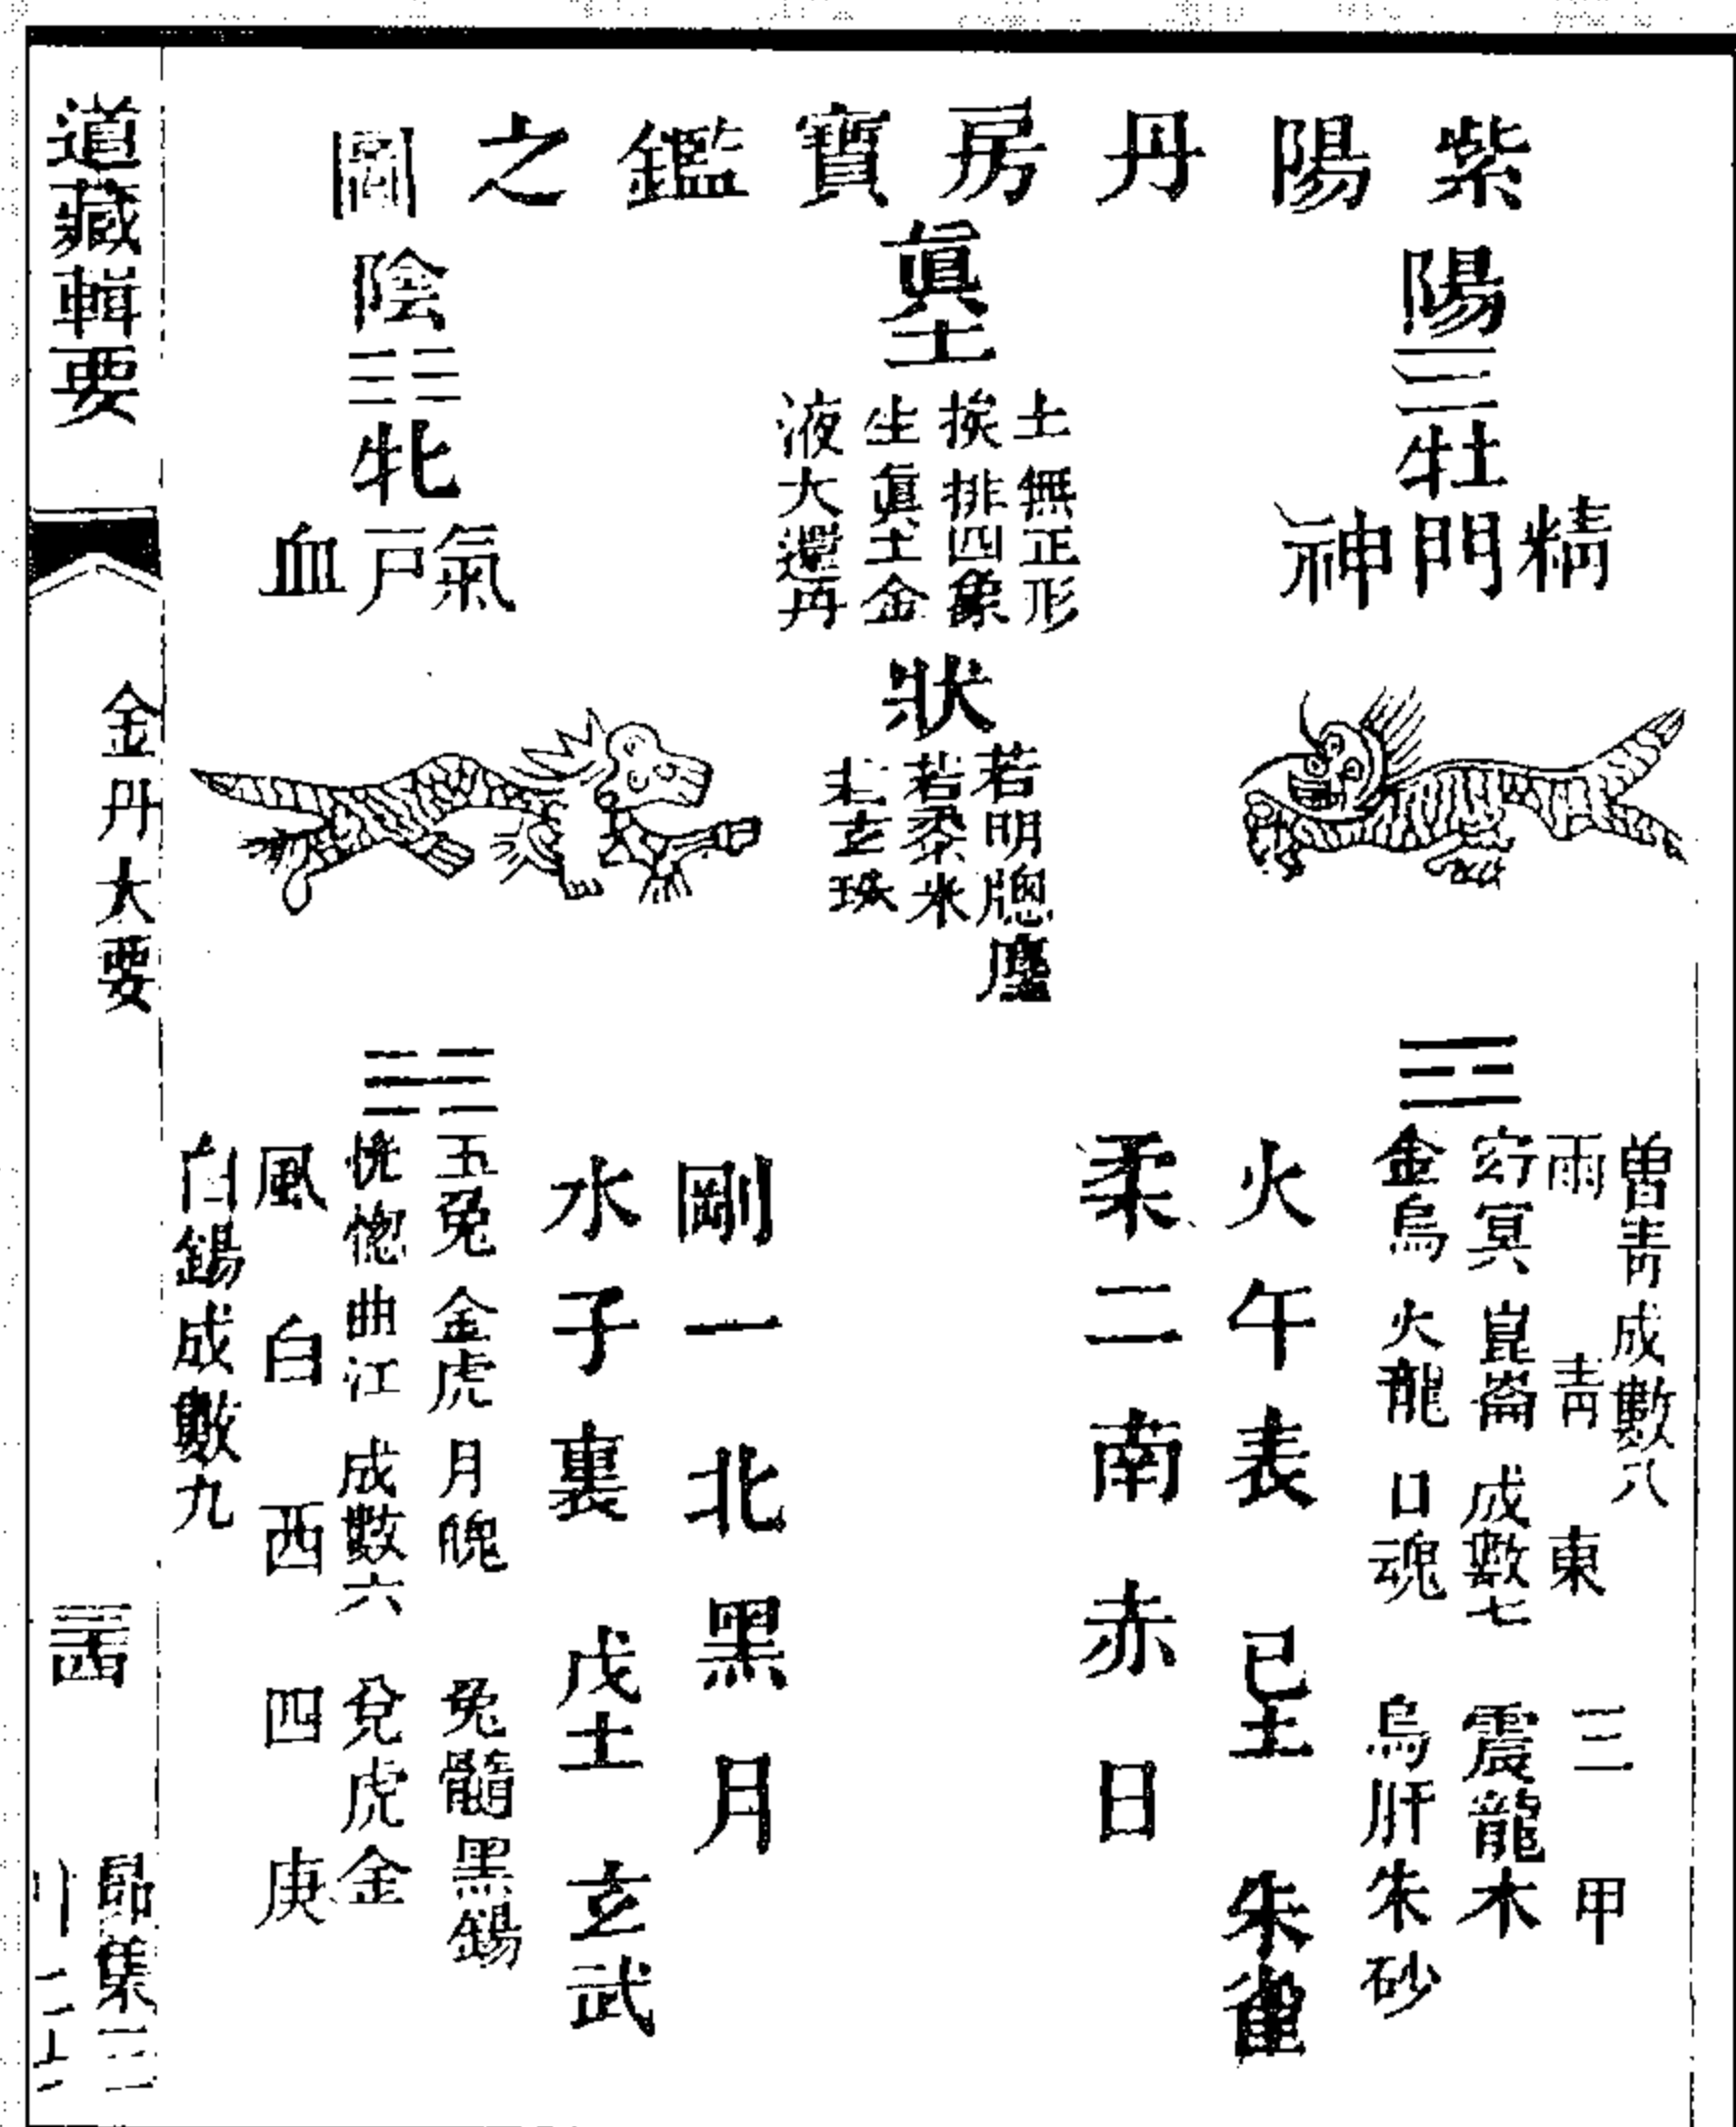 紫陽丹房寶鑑之圖
陽☰牡
精
門
神
眞土
土無正形
挨排四象
生眞土金
液大還丹
狀
若明牕塵
若黍米
若玄珠
陰☷牝
氣
戶
血
曾青成數八
雨青東三甲
窈冥崑崙成數七震龍木
☲
金烏火龍日魂烏肝朱砂
火午表己土朱雀
柔二南赤日
剛一北黑月
水子裏戊土玄武
☵
玉兔金虎月魄兔髓黑錫
恍惚曲江成數六兌虎金
風白西四庚
白錫成數九
道藏輯要
金丹大要
昴集